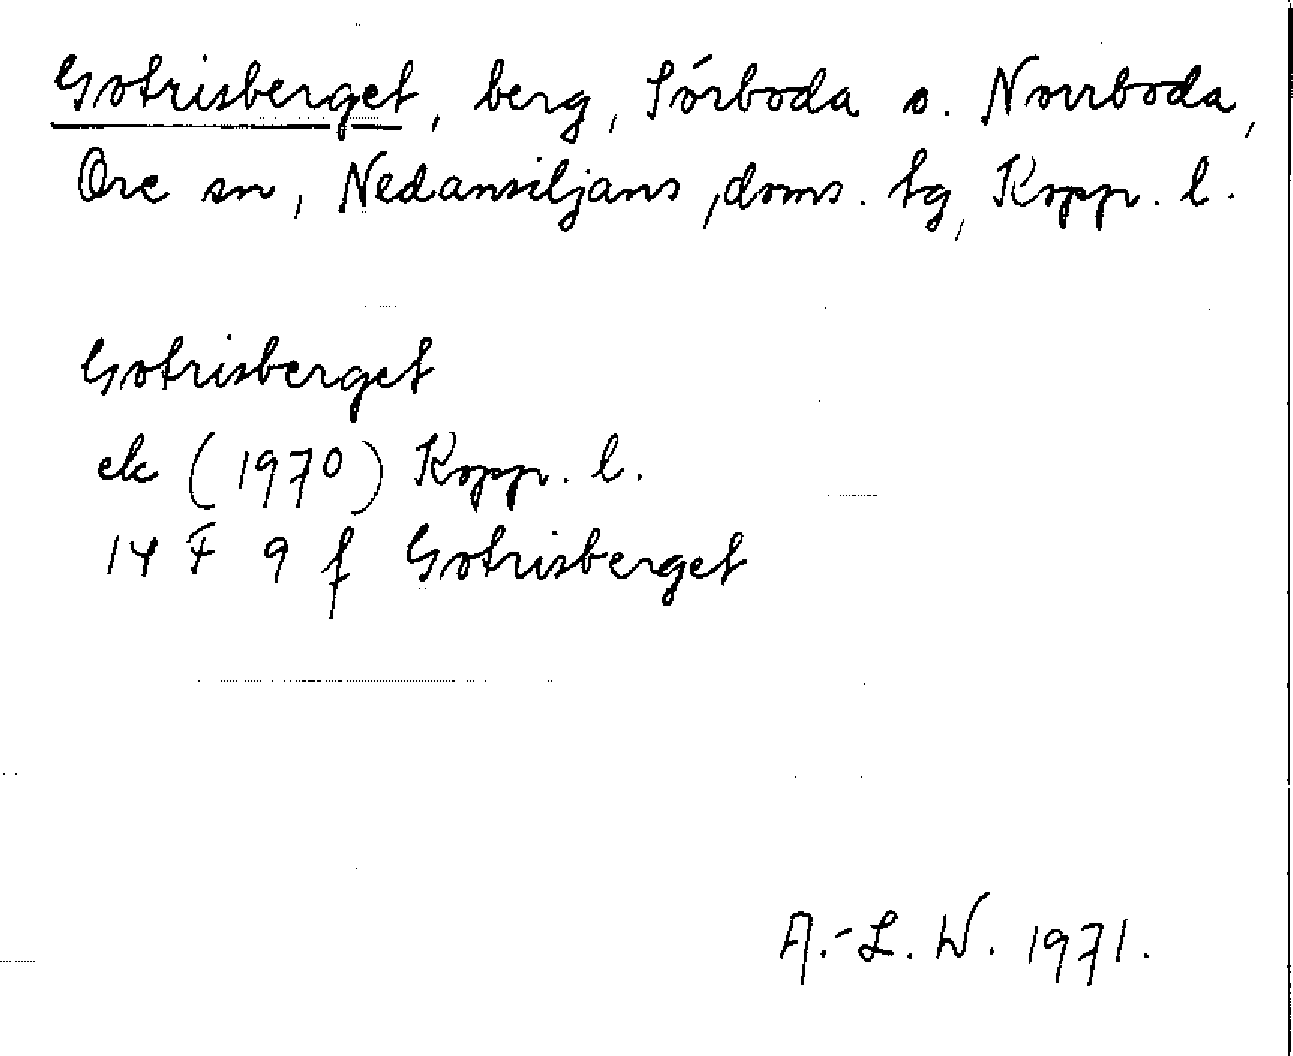 Gotrisberget, berg, Sörboda o. Norrboda,
Ore sn, Nedansiljans doms. tg, Kopp. l.
Gotrisberget
ek (1970) Kopp. l.
14 F 9 f Gotrisberget
A.-L. W. 1971.